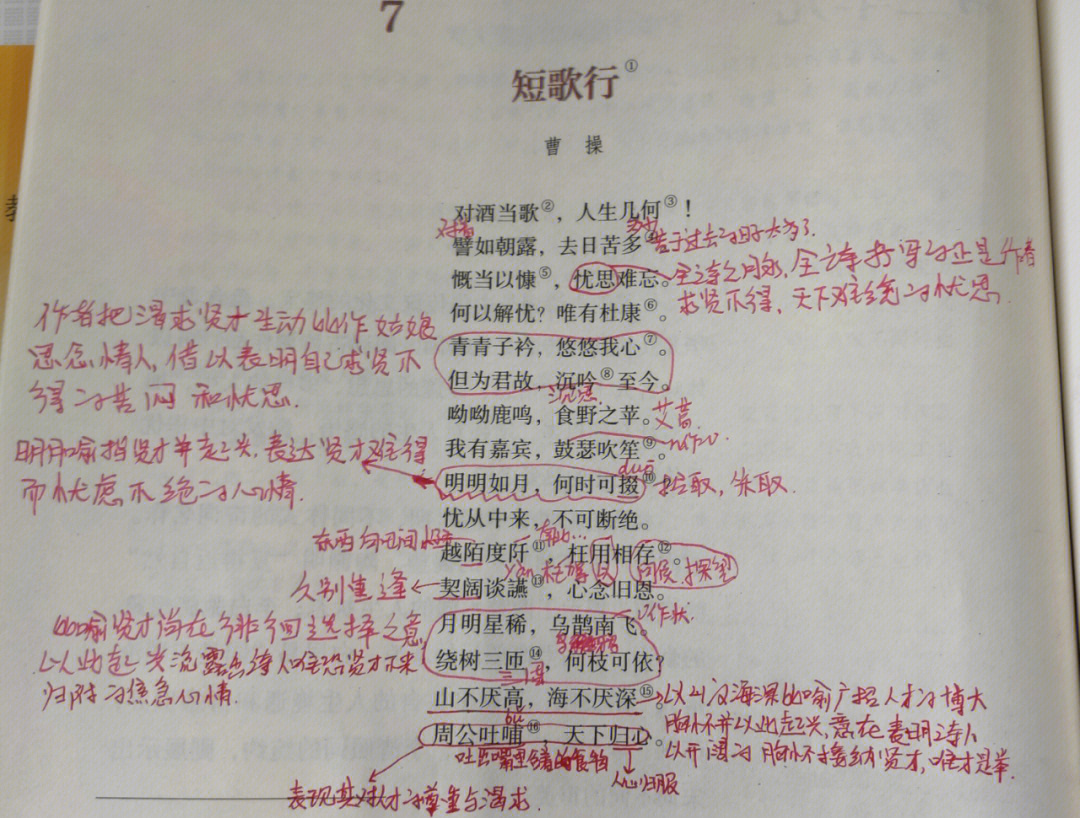 7
短歌行①
曹 操
对酒当歌②，人生几何③！
譬如朝露，去日苦多④
苦于过去的日子太多了.
慨当以慷⑤，忧思难忘。
全诗之
求贤不得，天下难统的忧思
何以解忧？唯有杜康⑥。
青青子衿，悠悠我心⑦。
但为君故，沉吟⑧至今。
沉思
作者把渴求贤才生动比作姑娘
思念情人，借以表明自己求贤不
得的苦闷和忧思.
呦呦鹿鸣，食野之苹。
艾蒿
我有嘉宾，鼓瑟吹笙⑨。
明明如月，何时可掇⑩
duō
拾取，采取.
明月喻指贤才并起兴，表达贤才难得
而忧虑不绝的心情.
忧从中来，不可断绝。
越陌度阡⑪，枉用相存⑫。
东西向田间小路
问候，探望
契阔谈䜩⑬，心念旧恩。
久别重逢
月明星稀，乌鹊南飞。
绕树三匝⑭，何枝可依？
比喻贤才尚在徘徊选择之意
以此起兴流露出诗人唯恐贤才不来
归附的焦急心情.
山不厌高，海不厌深⑮。
以山高海深比喻广招人才的博大
胸怀并以此起兴，意在表明诗人
以开阔的胸怀接纳贤才，唯才是举.
周公吐哺⑯，天下归心。
bǔ
吐出嘴里的食物
人心归服
表现其对人才的尊重与渴求.